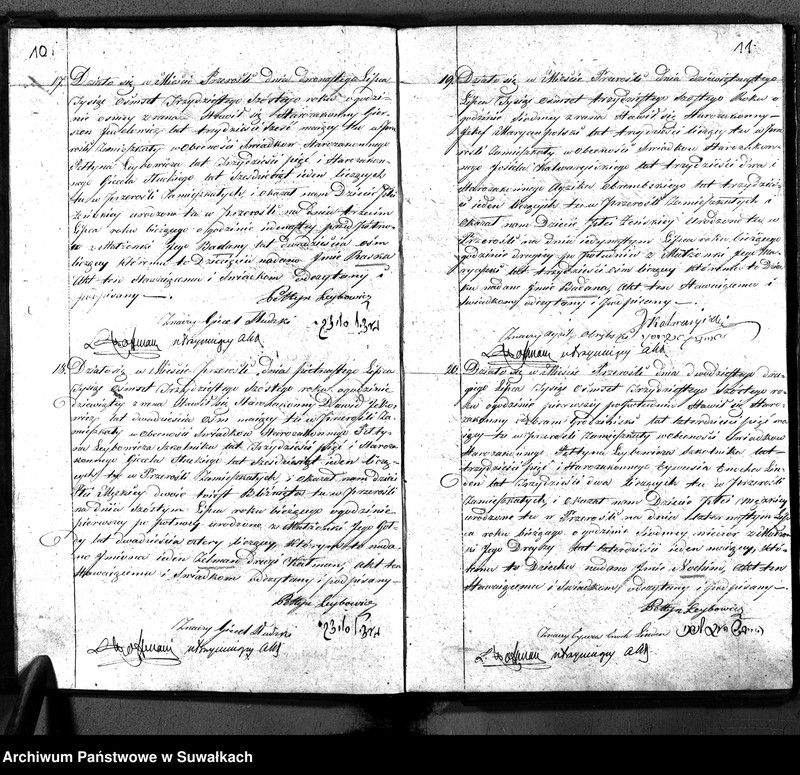 10.
17. Działo się w Mieście Przerośli dnia dwunastego Lipca
Tysiąc Ośmset Trzydziestego Szóstego roku o godzi-
nie ósmey z rana Stawił się Starozakonny Gier-
szon Judelowicz lat trzydzieści sześć maiący tu w Prze-
rośli Zamieszkały w Obecności Świadków Starozakonnego
Peltyna Leybowicza lat Trzydzieści pięć i Starozakon-
nego Gicela Słuckiego lat Sześćdziesiąt ieden liczących
tu w Przerośli Zamieszkałych, i okazał nam Dziecię Płci
Żeńskiey urodzone tu w Przerośli na dniu trzecim
Lipca roku bieżącego o godzinie iedenastey przed Północ-
ą z Małżonki Jego Badany lat dwadzieścia ośm
liczącey któremu to Dziecięciu nadano Jmie Raska
Akt ten Stawaiącemu i Świadkom odczytany i
podpisany —.
Peltyn Leybowicz
Znaiący Gicel Słucki
utrzymuiący akta
18. Działo się w Mieście Przerośli, dnia piętnastego Lipca
Tysiąc Ośmset Trzydziestego Szóstego roku, o godzinie
dziewiątey z rana Stawił się Starozakonny Dawid
lat dwadzieścia ośm maiący tu w Przerośli Za-
mieszkały w Obecności Świadków Starozakonnego Pelty-
na Leybowicza Szkolnika lat Trzydzieści pięć i Staroza-
konnego Gicela Słuckiego lat Sześćdziesiąt ieden licz-
ących tu w Przerośli Zamieszkałych, i okazał nam dzieci
Płci Męzkiey dwoie bliźnięta tu w Przerośli
na dniu Szóstym Lipca roku bieżącego o godzinie
pierwszey po północy urodzone z Małżonki Jego
lat dwadzieścia cztery liczącey Którym to nada-
no Jmiona ieden Zelman drugi Kalman, akt ten
Stawaiącemu i Świadkom odczytany i podpisany —
Peltyn Leybowicz
Znaiący Gicel Słucki
utrzymuiący akta
11.
19. Działo się w Mieście Przerośli dnia dziewiętnastego
Lipca Tysiąc Ośmset trzydziestego Szóstego Roku o
godzinie Siódmey z rana Stawił się Starozakonny
Maryampolski lat trzydzieści liczący tu w Prze-
rośli Zamieszkały w Obecności Świadków Starozakon-
nego Kalwaryiskiego lat trzydzieści dwa i
Starozakonnego lat trzydzieś-
ci ieden liczących tu w Przerośli Zamieszkałych i
Okazał nam Dziecię płci Żeńskiey Urodzone tu w
Przerośli na dniu iedynastym Lipca roku bieżącego
godzinie drugiey po południu z Małżonki Jego
lat trzydzieści ośm liczącey któremu to Dziec-
ku nadano Jmie Badana, akt ten Stawaiącemu i
Świadkom odczytany i Podpisany —.
Kalwaryiski
Znaiący
utrzymuiący akta
20. Działo się w Mieście Przerośli dnia dwudziestego dru-
giego Lipca Tysiąc Ośmset Trzydziestego Szóstego ro-
ku o godzinie pierwszey po południu Stawił się Staro-
zakonny Abram Grodzieński lat czterdzieści pięć ma-
iący tu w Przerośli Zamieszkały w obecności Świadków
Starozakonnego Peltyna Leybowicza Szkolnika lat
trzydzieści pięć i Starozakonnego
lat Trzydzieści dwa liczących tu w Przerośli
Zamieszkałych, i okazał nam Dziecię płci męzkiey
urodzone tu w Przerośli na dniu czternastym Lip-
ca roku bieżącego o godzinie Siódmey wieczór z Małżon-
ki Jego lat czterdzieści ieden maiącey, któ-
remu to Dziecku nadano Jmie Nochim, akt ten
Stawaiącemu i Świadkom odczytany i podpisany —.
Peltyn Leybowicz
Znaiący
utrzymuiący akta.
Archiwum Państwowe w Suwałkach